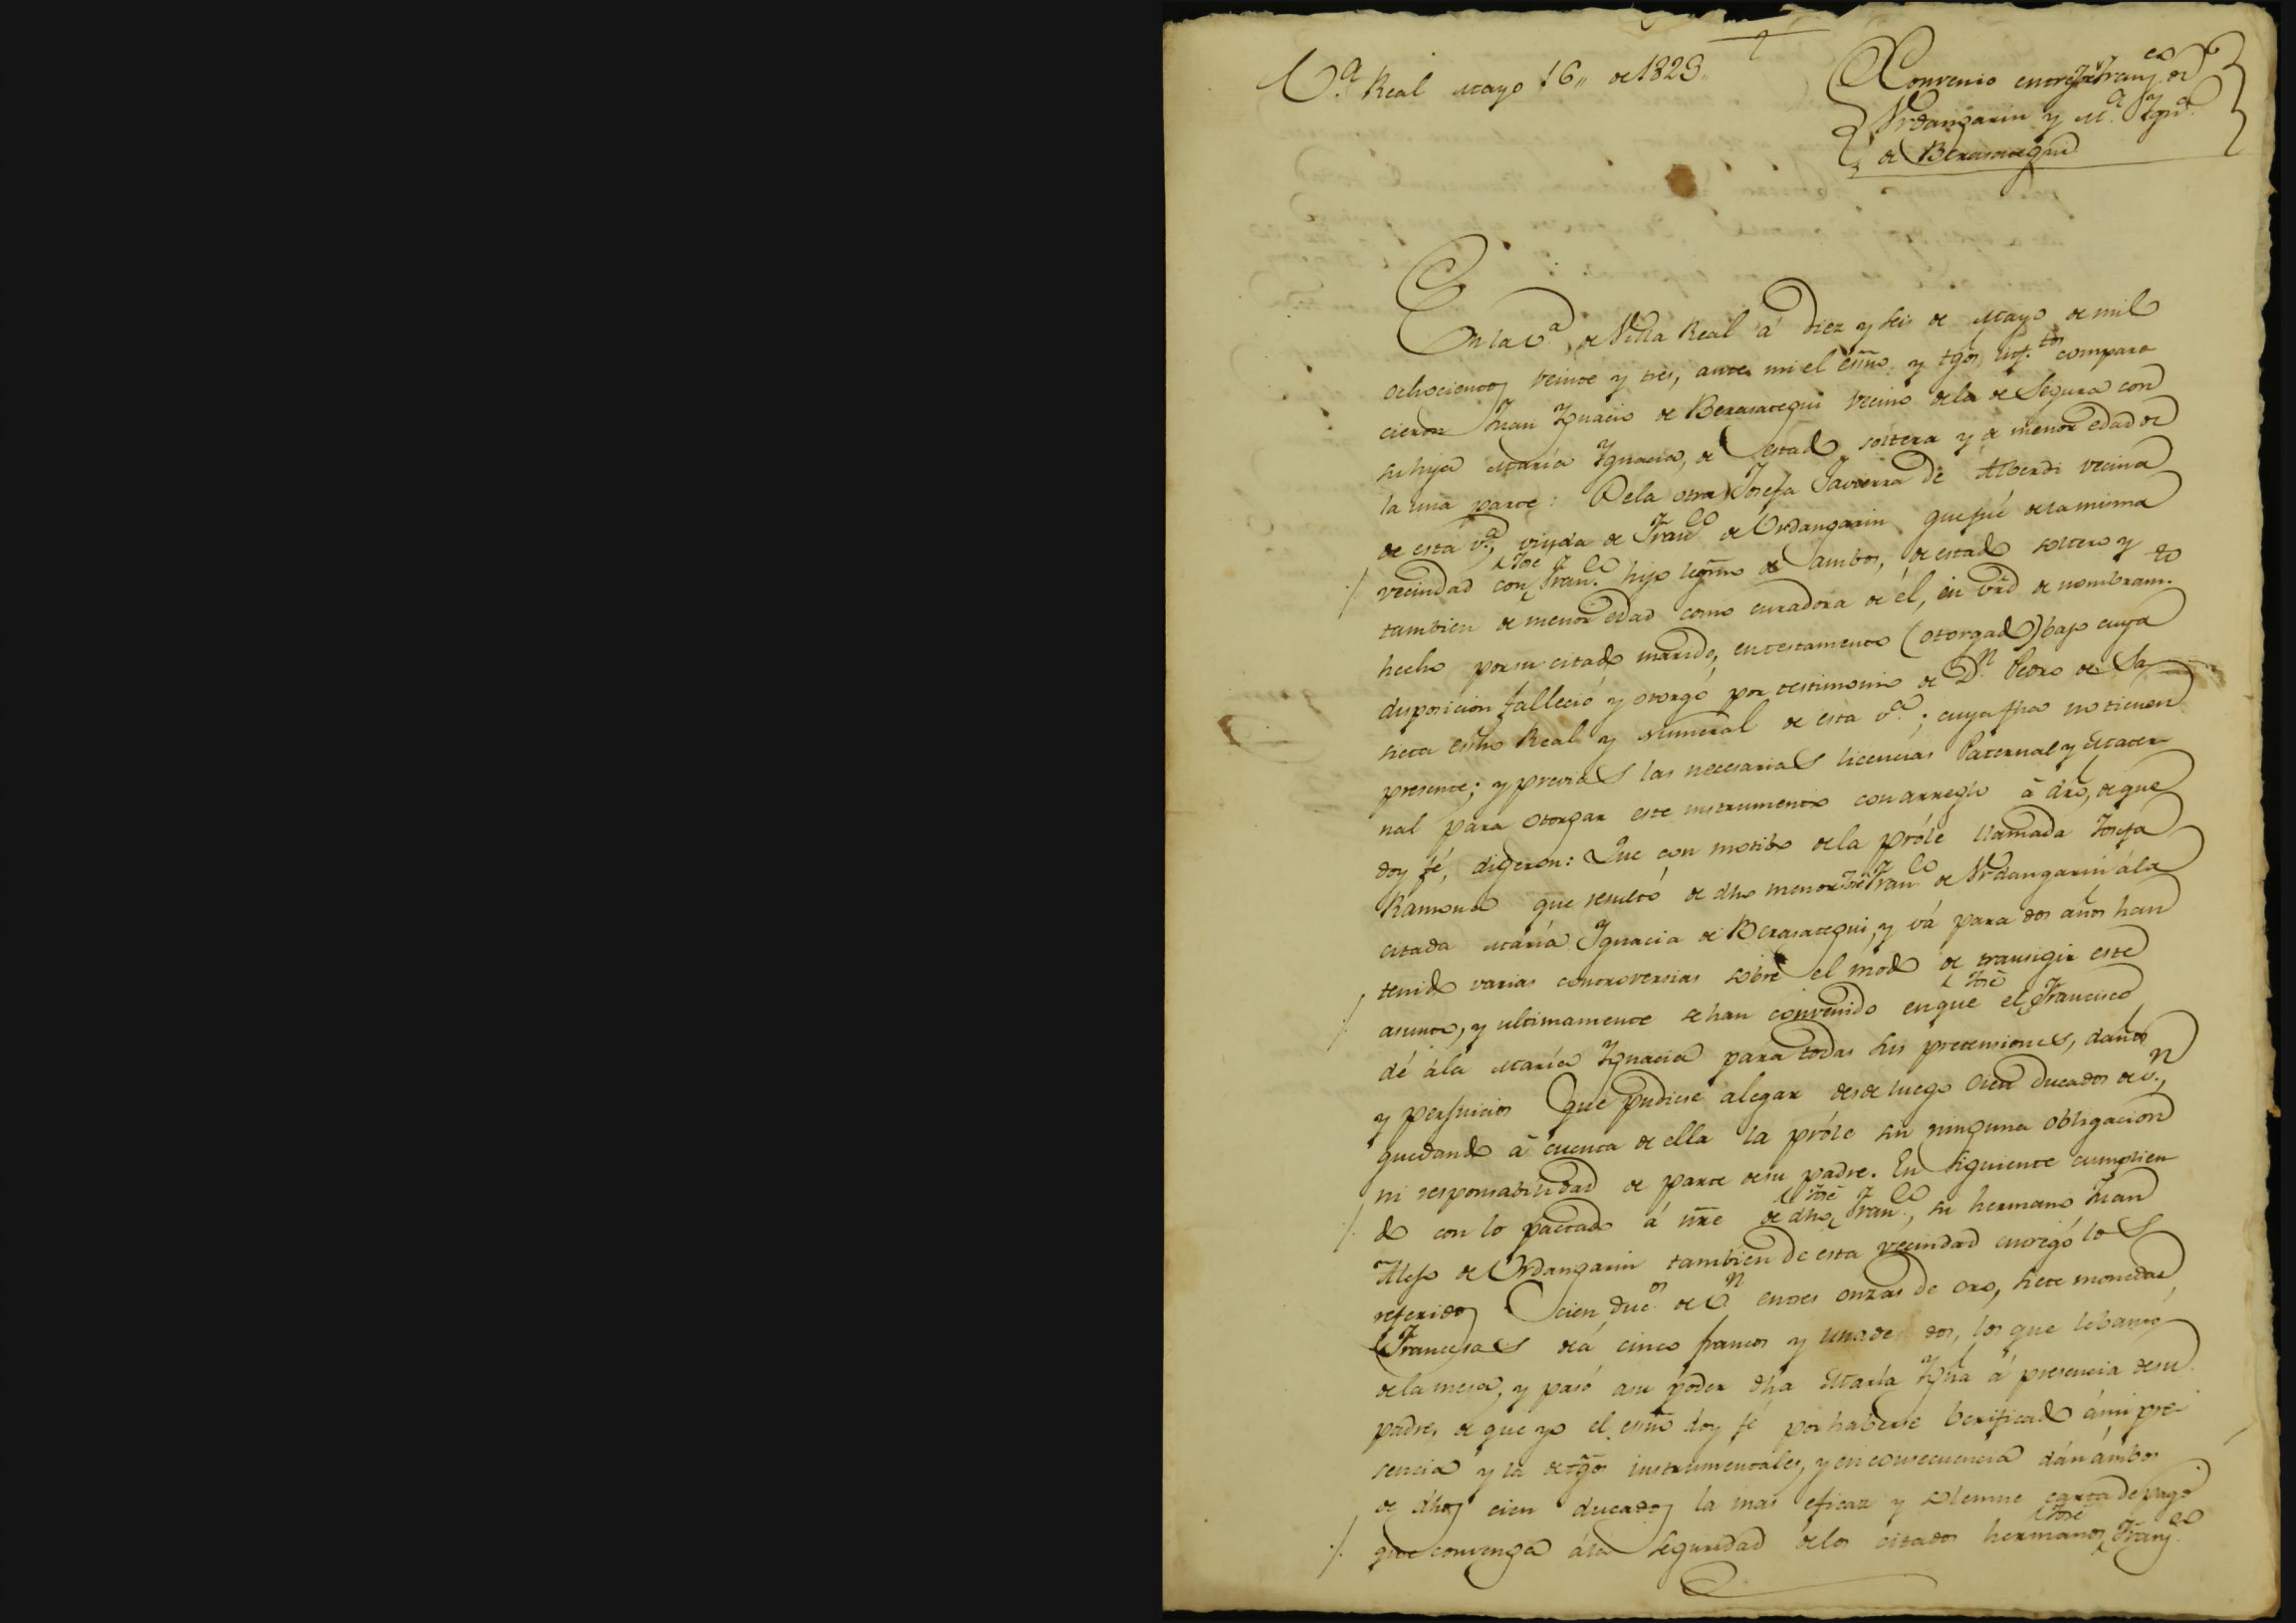 V.ª Real Mayo 16,, de 1823.
Convenio entre José Fran.co de
Urdangarin y M.ª Ygn.ª
de Berasategui
En la V.ª de Villa Real á diez y seis de Mayo de mil
ochocientos veinte y tres, ante mi el esño. y tgos. inf.tos compare
cieron Juan Ygnacio de Berasategui vecino de la de Segura con
su hija María Ygnacia, de estado soltera y de menor edad de
la una parte: De la otra Josefa Javierra de Alberdi vecina
de esta v.ª, viuda de Fran.co de Urdangarin que fué de la misma
vecindad con José Fran.co hijo legmo. de ambos, de estado soltero y
tambien de menor edad como curadora de él, en vrd de nombram.to
hecho por su citado marido, en testamento (otorgado) bajo cuya
disposicion falleció y otorgó por testimonio de D.n Pedro de Sa-
sieta esño Real y Numeral de esta v.ª; cuya fha no tienen
presente; y previas las necesarias licencias Paternal y Mater-
nal para otorgar este instrumento con arreglo á dro, de que
doy fé, digeron: Que con motibo de la próle llamada Josefa
Ramona que resultó de dho menor José Fran.co de Urdangarin á la
citada María Ygnacia de Berasategui, y vá para dos años han
tenido varias controversias sobre el modo de transigir este
asunto, y ultimamente se han convenido en que el José Francisco
dé á la María Ygnacia para todas sus pretensiones, daños
y perjuicios que pudiese alegar desde luego cien ducados de v.n,
quedando á cuenta de ella la próle sin ninguna obligacion
ni responsabilidad de parte de su padre. En siguiente cumplien
do con lo pactado á nre de dho José Fran.co, su hermano Juan
Alejo de Urdangarin tambien de esta vecindad entregó los
referidos cien duc.os de V.n en tres onzas de oro, siete monedas
Francesas de á cinco francos y una de dos, los que lebantó
de la mesa, y pasó a su poder dha María Ygña á presencia de su
padre, de que yo el esño doy fé por haberse berificado á mi pre-
sencia y la de tgos instrumentales, y en consecuencia dán ámbos
de dhos cien ducados la mas eficaz y solemne carta de pago
que convenga á la seguridad de los citados hermanos José Fran.co